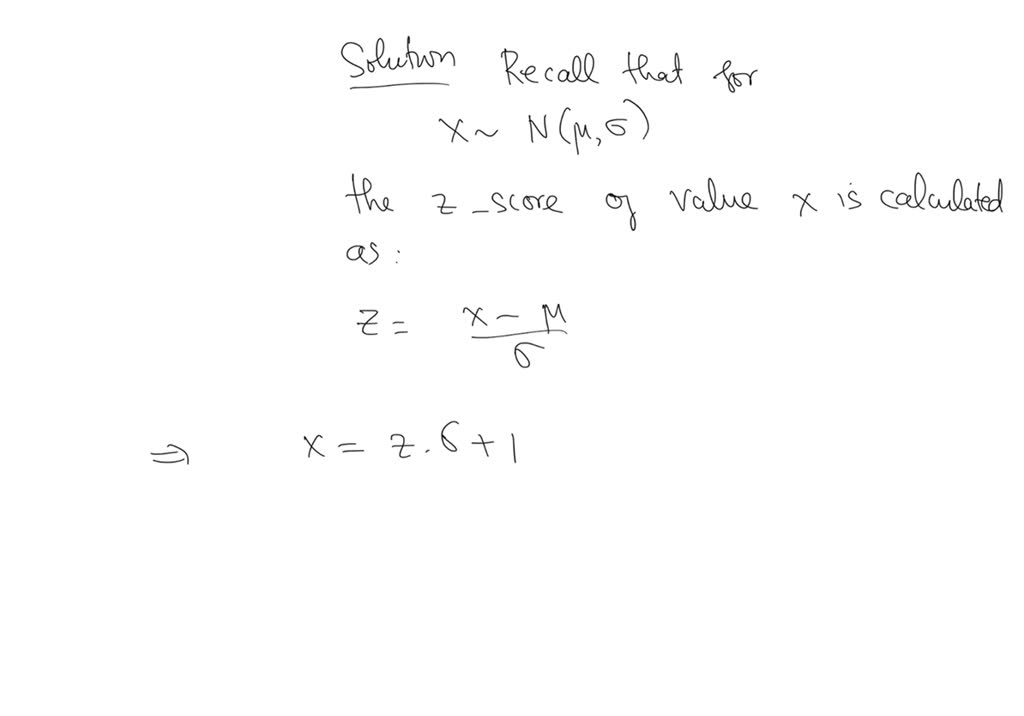 Solution Recall that for
X ~ N(μ, σ)
the z-score of value x is calculated
as:
z = x - μ / σ
⇒ x = z . σ + 1